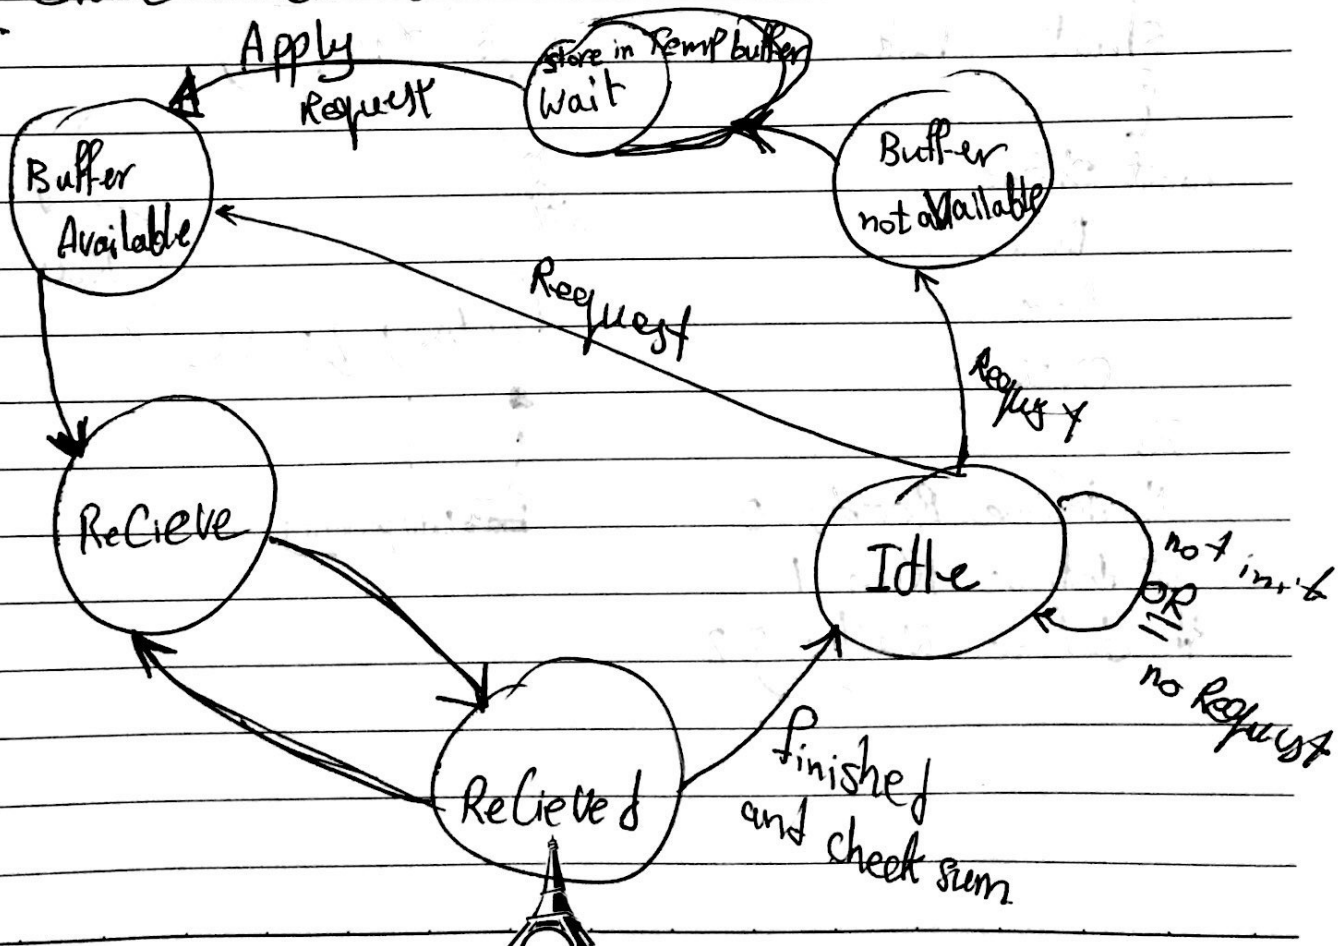 Apply
Request
store in Temp buffer
wait
Buffer
Available
Buffer
not available
Request
Request
ReCieve
Idle
not init
OR
no Request
ReCieved
finished
and check sum